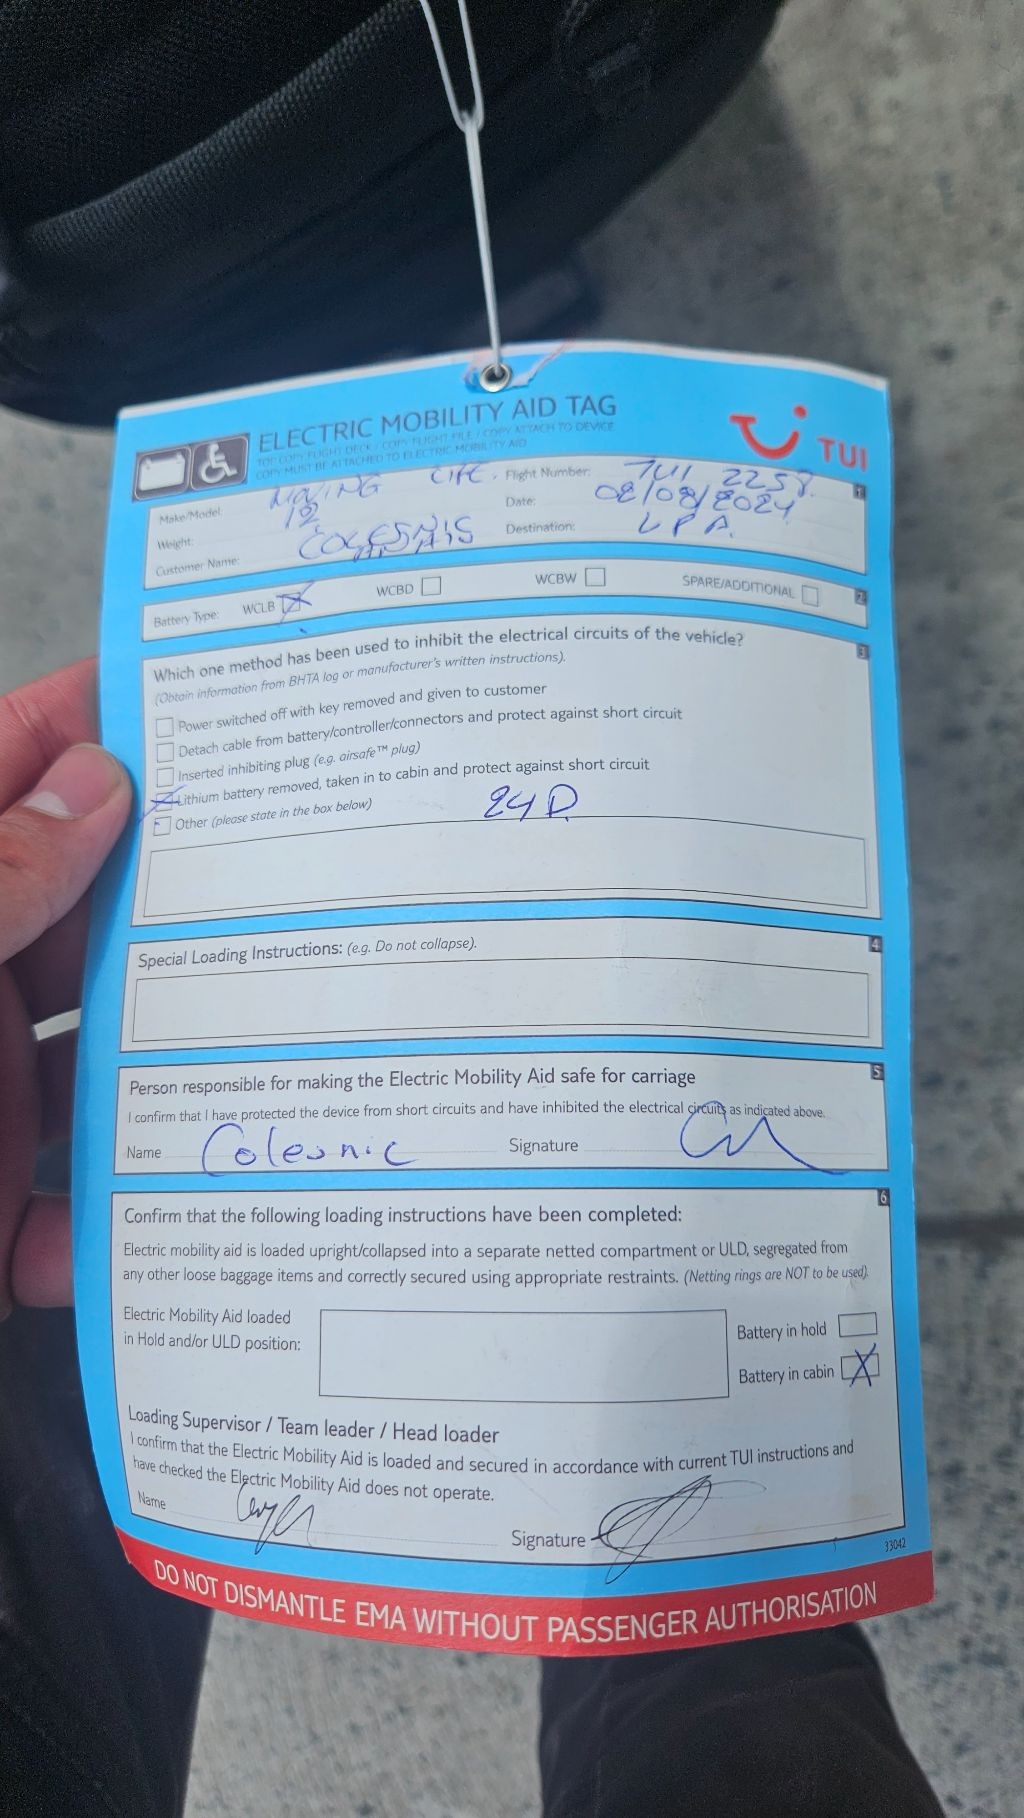 ELECTRIC MOBILITY AID TAG
TOP COPY FLIGHT DECK / COPY FLIGHT FILE / COPY ATTACH TO DEVICE
COPY MUST BE ATTACHED TO ELECTRIC MOBILITY AID
TUI
1
Make/Model: MOVING LIFE.
Flight Number: TUI 2258.
Weight: 12
Date: 08/08/2024
Customer Name:
Destination: LPA.
2
Battery Type: WCLB WCBD WCBW SPARE/ADDITIONAL
3
Which one method has been used to inhibit the electrical circuits of the vehicle?
(Obtain information from BHTA log or manufacturer's written instructions).
Power switched off with key removed and given to customer
Detach cable from battery/controller/connectors and protect against short circuit
Inserted inhibiting plug (e.g. airsafe™ plug)
Lithium battery removed, taken in to cabin and protect against short circuit
Other (please state in the box below)
24D.
4
Special Loading Instructions: (e.g. Do not collapse).
5
Person responsible for making the Electric Mobility Aid safe for carriage
I confirm that I have protected the device from short circuits and have inhibited the electrical circuits as indicated above.
Name Colesnic Signature
6
Confirm that the following loading instructions have been completed:
Electric mobility aid is loaded upright/collapsed into a separate netted compartment or ULD, segregated from
any other loose baggage items and correctly secured using appropriate restraints. (Netting rings are NOT to be used).
Electric Mobility Aid loaded
in Hold and/or ULD position:
Battery in hold
Battery in cabin
Loading Supervisor / Team leader / Head loader
I confirm that the Electric Mobility Aid is loaded and secured in accordance with current TUI instructions and
have checked the Electric Mobility Aid does not operate.
Name
Signature
33042
DO NOT DISMANTLE EMA WITHOUT PASSENGER AUTHORISATION